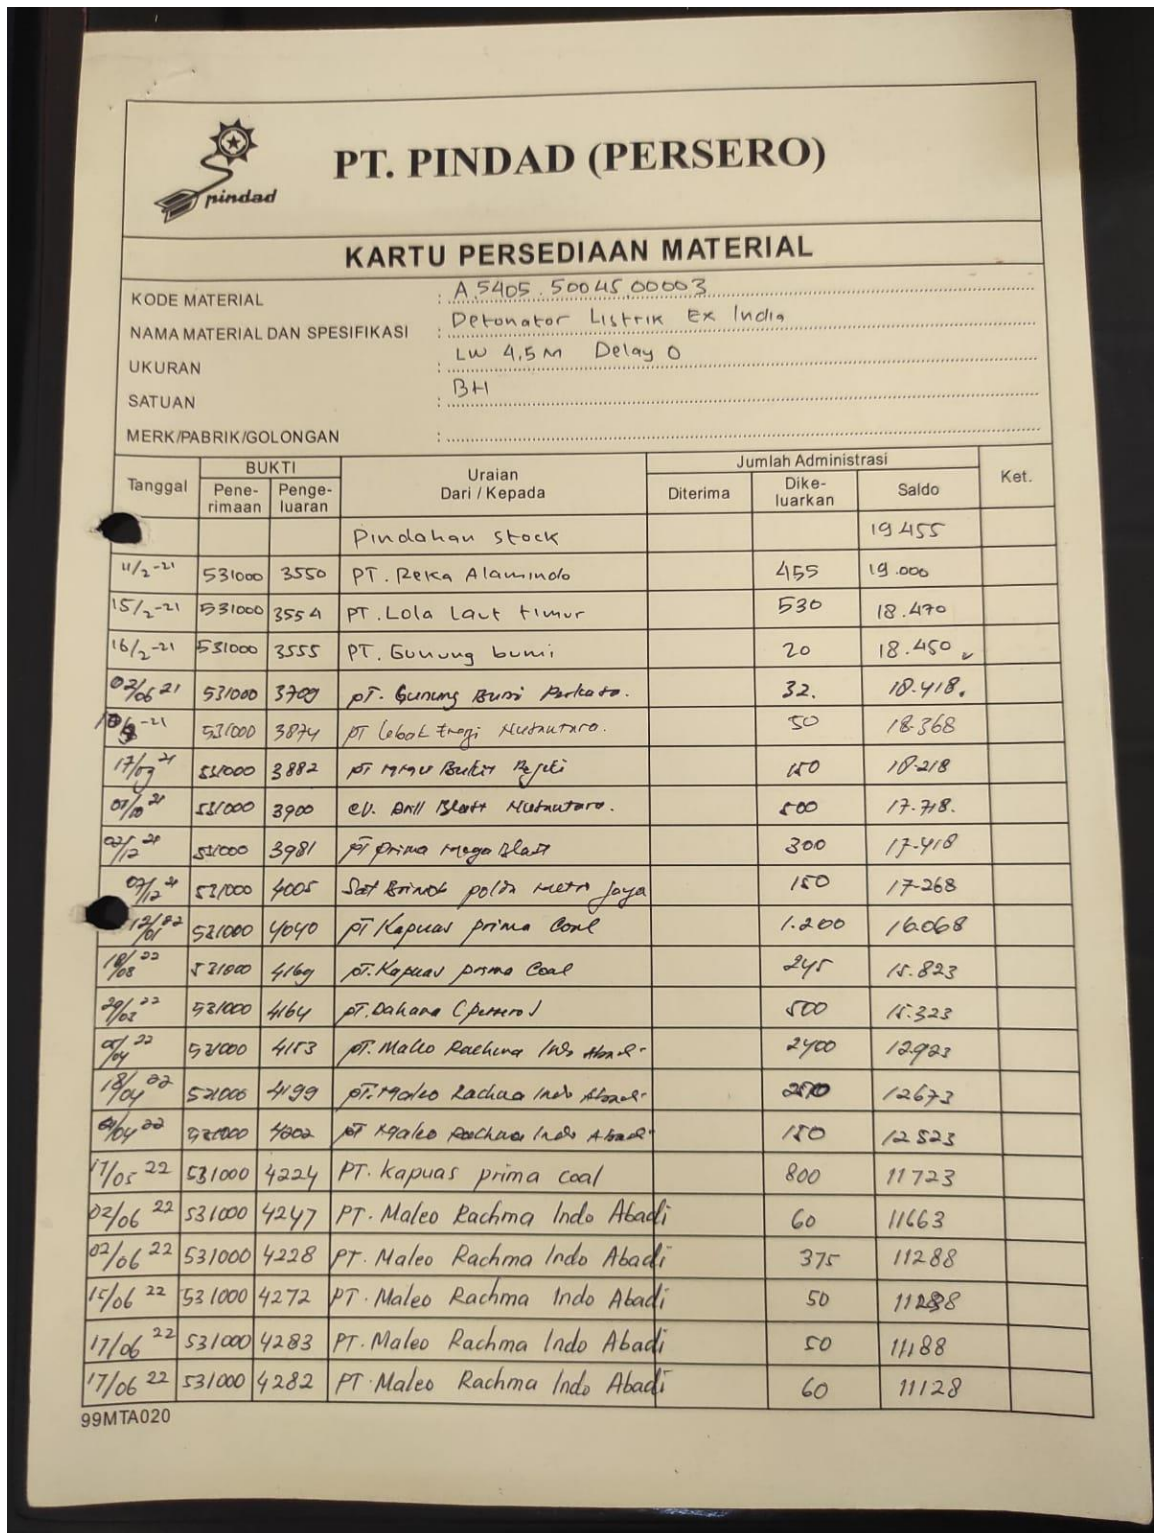 pindad
PT. PINDAD (PERSERO)
KARTU PERSEDIAAN MATERIAL
KODE MATERIAL : A.5405.50045.00003
NAMA MATERIAL DAN SPESIFIKASI : Detonator Listrik Ex India
UKURAN : LW 4,5 M Delay 0
SATUAN : BH
MERK/PABRIK/GOLONGAN :
Tanggal BUKTI Uraian Dari / Kepada Jumlah Administrasi Ket.
Pene-rimaan Penge-luaran Diterima Dike-luarkan Saldo
Pindahan stock 19455
11/2-21 531000 3550 PT. Reka Alamindo 455 19.000
15/2-21 531000 3554 PT. Lola Laut timur 530 18.470
16/2-21 531000 3555 PT. Gunung bumi 20 18.450
02/06 21 531000 3709 PT. Gunung Bumi 32. 18.418.
-21 531000 3874 PT Lebak Energi Nusantara. 50 18.368
17/09 21 531000 3882 PT Bukit 150 18.218
07/10 21 531000 3900 CV. Drill Blast Nusantara. 500 17.718.
02/12 21 531000 3981 PT Prima Mega Blast 300 17.418
07/12 21 531000 4005 Sat Brimob polda metro jaya 150 17.268
12/01 22 531000 4040 PT Kapuas prima Coal 1.200 16.068
18/03 22 531000 4169 PT. Kapuas prima Coal 245 15.823
29/03 22 531000 4164 PT. Dahana (persero) 500 15.323
05/04 22 531000 4153 PT. Maleo Rachma Indo Abadi 2400 12.923
18/04 22 531000 4199 PT. Maleo Rachma Indo Abadi 250 12673
/04 22 531000 4202 PT Maleo Rachma Indo Abadi 150 12523
17/05 22 531000 4224 PT. Kapuas prima coal 800 11723
02/06 22 531000 4247 PT. Maleo Rachma Indo Abadi 60 11663
02/06 22 531000 4228 PT. Maleo Rachma Indo Abadi 375 11288
15/06 22 531000 4272 PT. Maleo Rachma Indo Abadi 50 11238
17/06 22 531000 4283 PT. Maleo Rachma Indo Abadi 50 11188
17/06 22 531000 4282 PT. Maleo Rachma Indo Abadi 60 11128
99MTA020